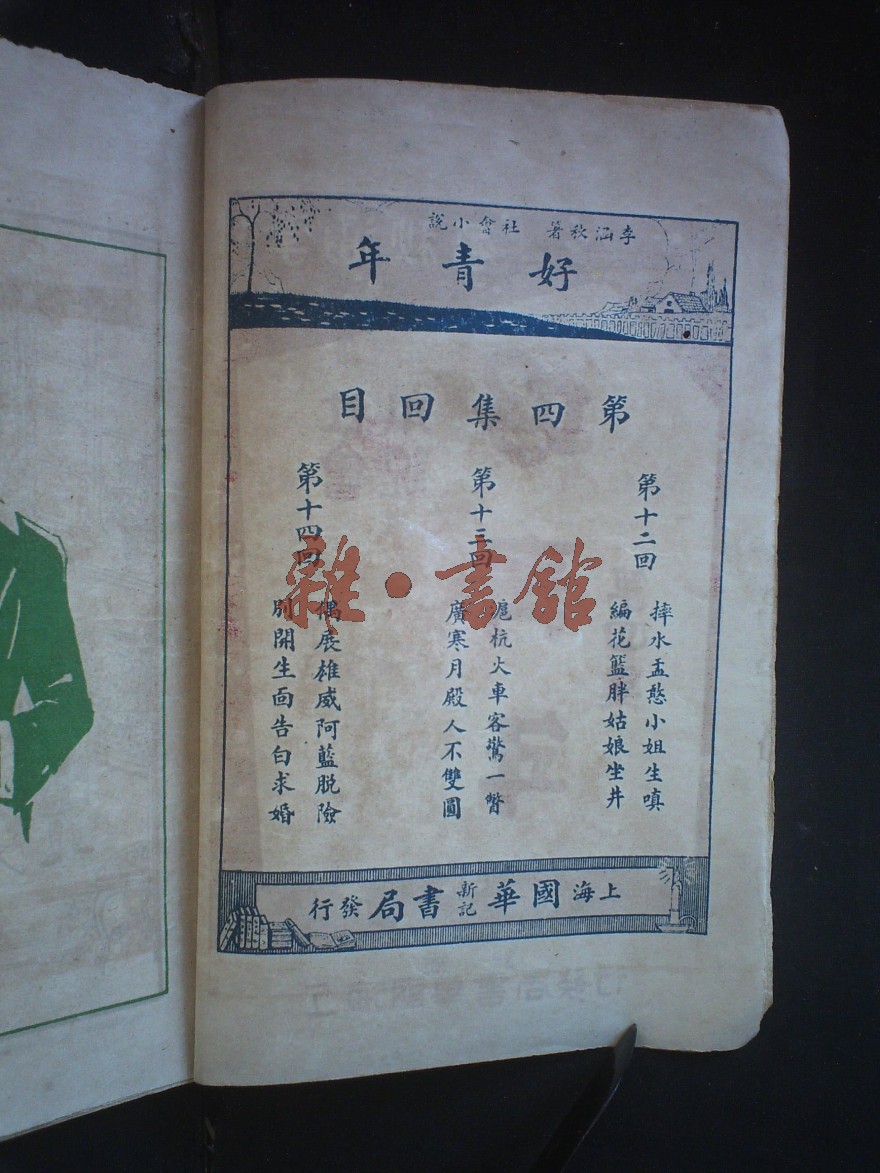 李涵秋著 社會小說
好青年
第四集回目
第十二回
摔水盂憨小姐生嗔
編花籃胖姑娘坐井
第十三回
滬杭火車客驚一瞥
廣寒月殿人不雙圓
第十四回
偶展雄威阿藍脫險
別開生面告白求婚
上海國華新記書局發行
雜·書館